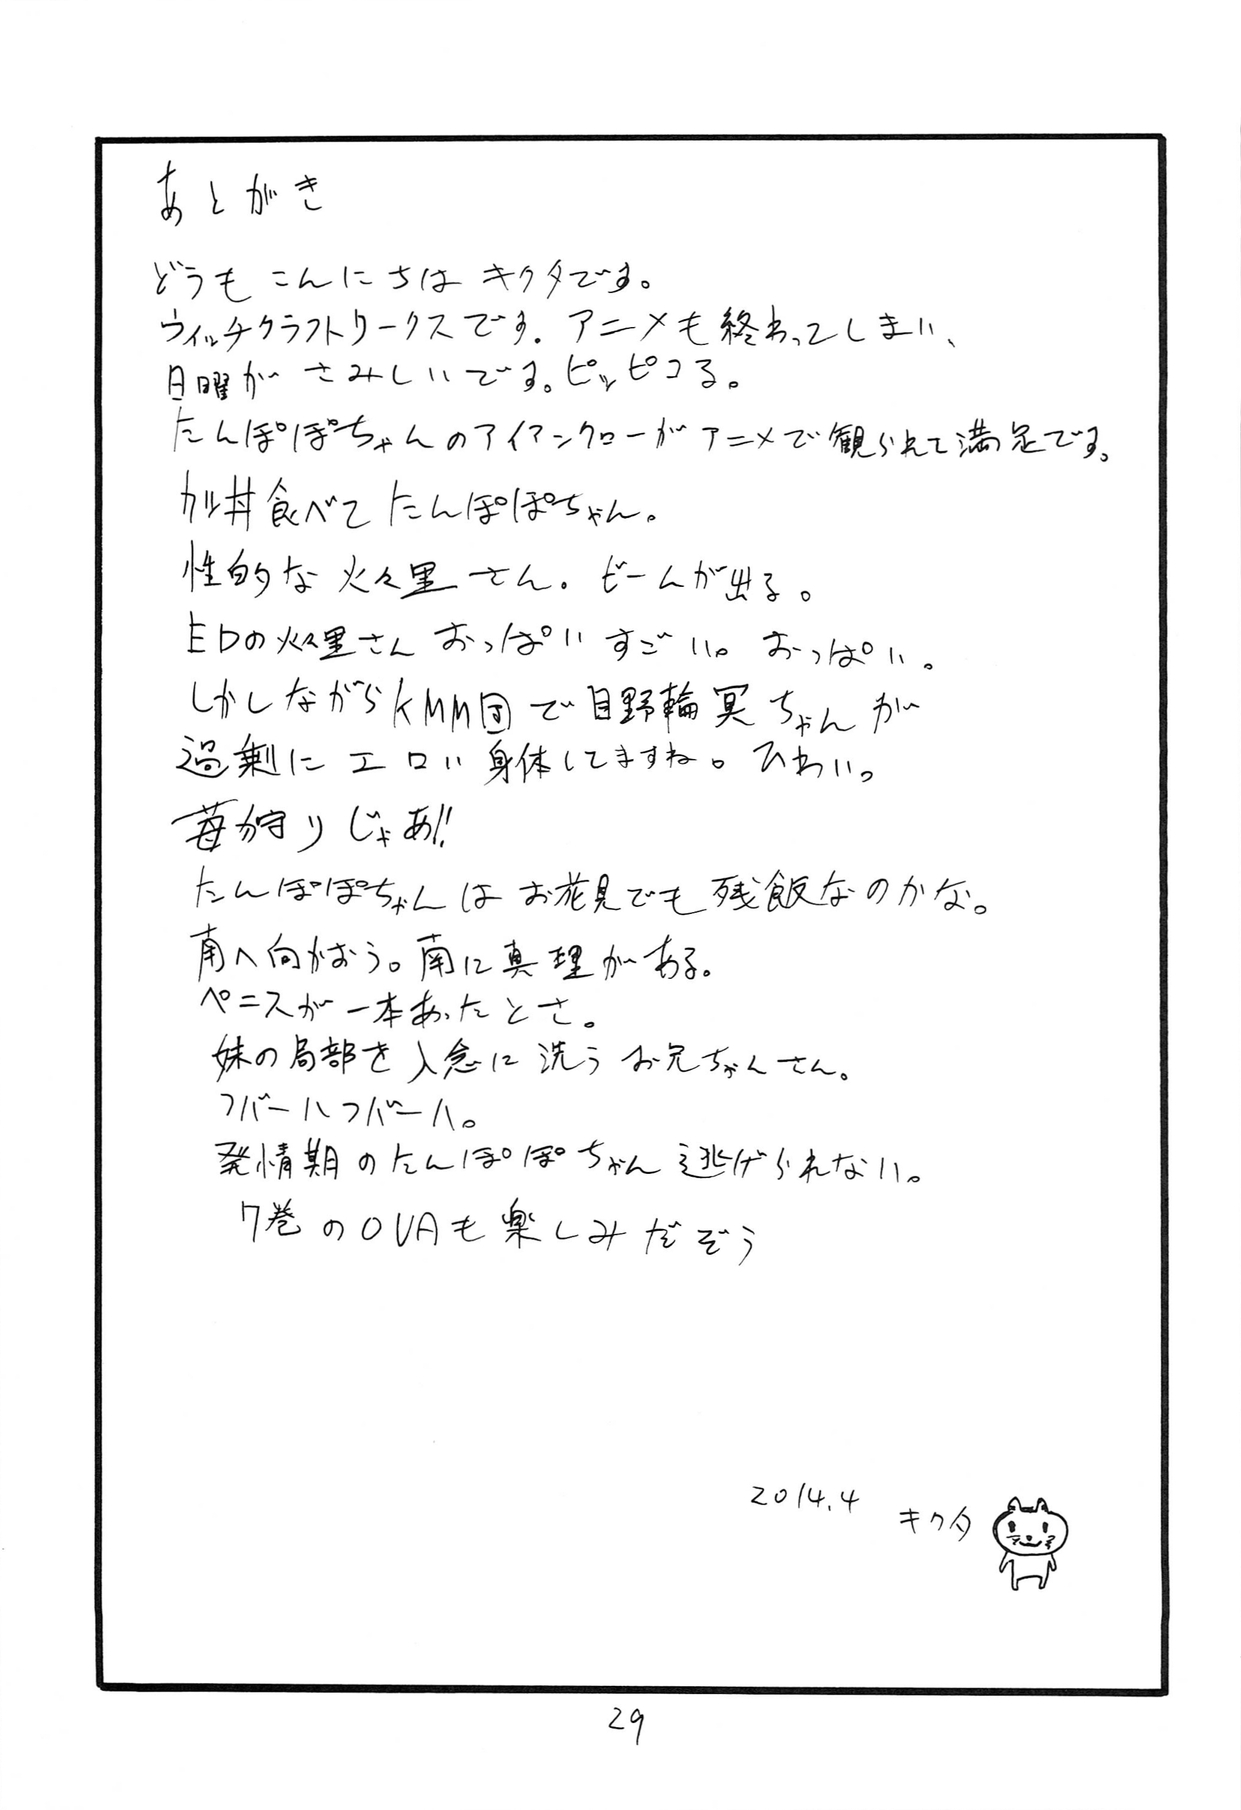 あとがき
どうも こんにちは キクタです。
ウィッチクラフトワークスです。アニメも終わってしまい、
日曜が さみしいです。ピッピコる。
たんぽぽちゃんのアイアンクローがアニメで観られて満足です。
カツ丼食べて たんぽぽちゃん。
性的な 火々里さん。ビームが出る。
EDの火々里さん おっぱい すごい。おっぱい。
しかしながらKMM団で目野輪冥ちゃんが
過剰に エロい 身体してますね。ひわい。
苺狩りじゃあ!!
たんぽぽちゃんは お花見でも 残飯なのかな。
南へ向かおう。南に真理がある。
ペニスが一本あったとさ。
妹の局部を入念に洗う お兄ちゃんさん。
フバーハフバーハ。
発情期のたんぽぽちゃん 逃げられない。
7巻のOVAも楽しみだぞう
2014.4
キクタ
29